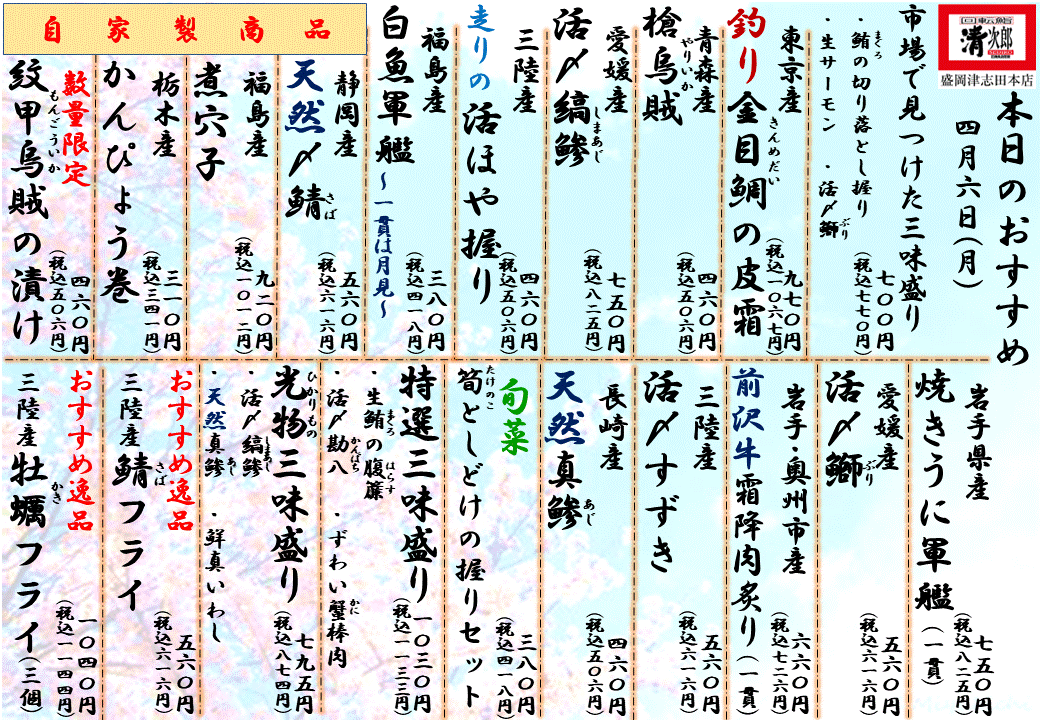 回転鮨
清次郎
盛岡津志田本店
本日のおすすめ
四月六日(月)
市場で見つけた三味盛り
・鮪の切り落とし握り
まぐろ
・生サーモン ・活〆鰤
ぶり
七〇〇円
(税込七七〇円)
東京産
釣り金目鯛の皮霜
きんめだい
九七〇円
(税込一〇六七円)
青森産
槍烏賊
やりいか
四六〇円
(税込五〇六円)
愛媛産
活〆縞鯵
しまあじ
七五〇円
(税込八二五円)
三陸産
走りの活ほや握り
四六〇円
(税込五〇六円)
福島産
白魚軍艦~一貫は月見~
三八〇円
(税込四一八円)
静岡産
天然〆鯖
さば
五六〇円
(税込六一六円)
自家製商品
福島産
煮穴子
九二〇円
(税込一〇一二円)
栃木産
かんぴょう巻
三一〇円
(税込三四一円)
数量限定
紋甲烏賊の漬け
もんこういか
四六〇円
(税込五〇六円)
岩手県産
焼きうに軍艦(一貫)
七五〇円
(税込八二五円)
愛媛産
活〆鰤
ぶり
五六〇円
(税込六一六円)
岩手・奥州市産
前沢牛霜降肉炙り(一貫)
六六〇円
(税込七二六円)
三陸産
活〆すずき
五六〇円
(税込六一六円)
長崎産
天然真鯵
あじ
四六〇円
(税込五〇六円)
旬菜
筍としどけの握りセット
たけのこ
三八〇円
(税込四一八円)
特選三味盛り
・生鮪の腹簾
まぐろ はらす
・活〆勘八 ・ずわい蟹棒肉
かんぱち かに
一〇三〇円
(税込一一三三円)
光物三味盛り
ひかりもの
・活〆縞鯵
しまあじ
・天然真鯵 ・鮮真いわし
あじ
七九五円
(税込八七四円)
おすすめ逸品
三陸産鯖フライ
さば
五六〇円
(税込六一六円)
おすすめ逸品
三陸産牡蠣フライ(三個)
かき
一〇四〇円
(税込一一四四円)